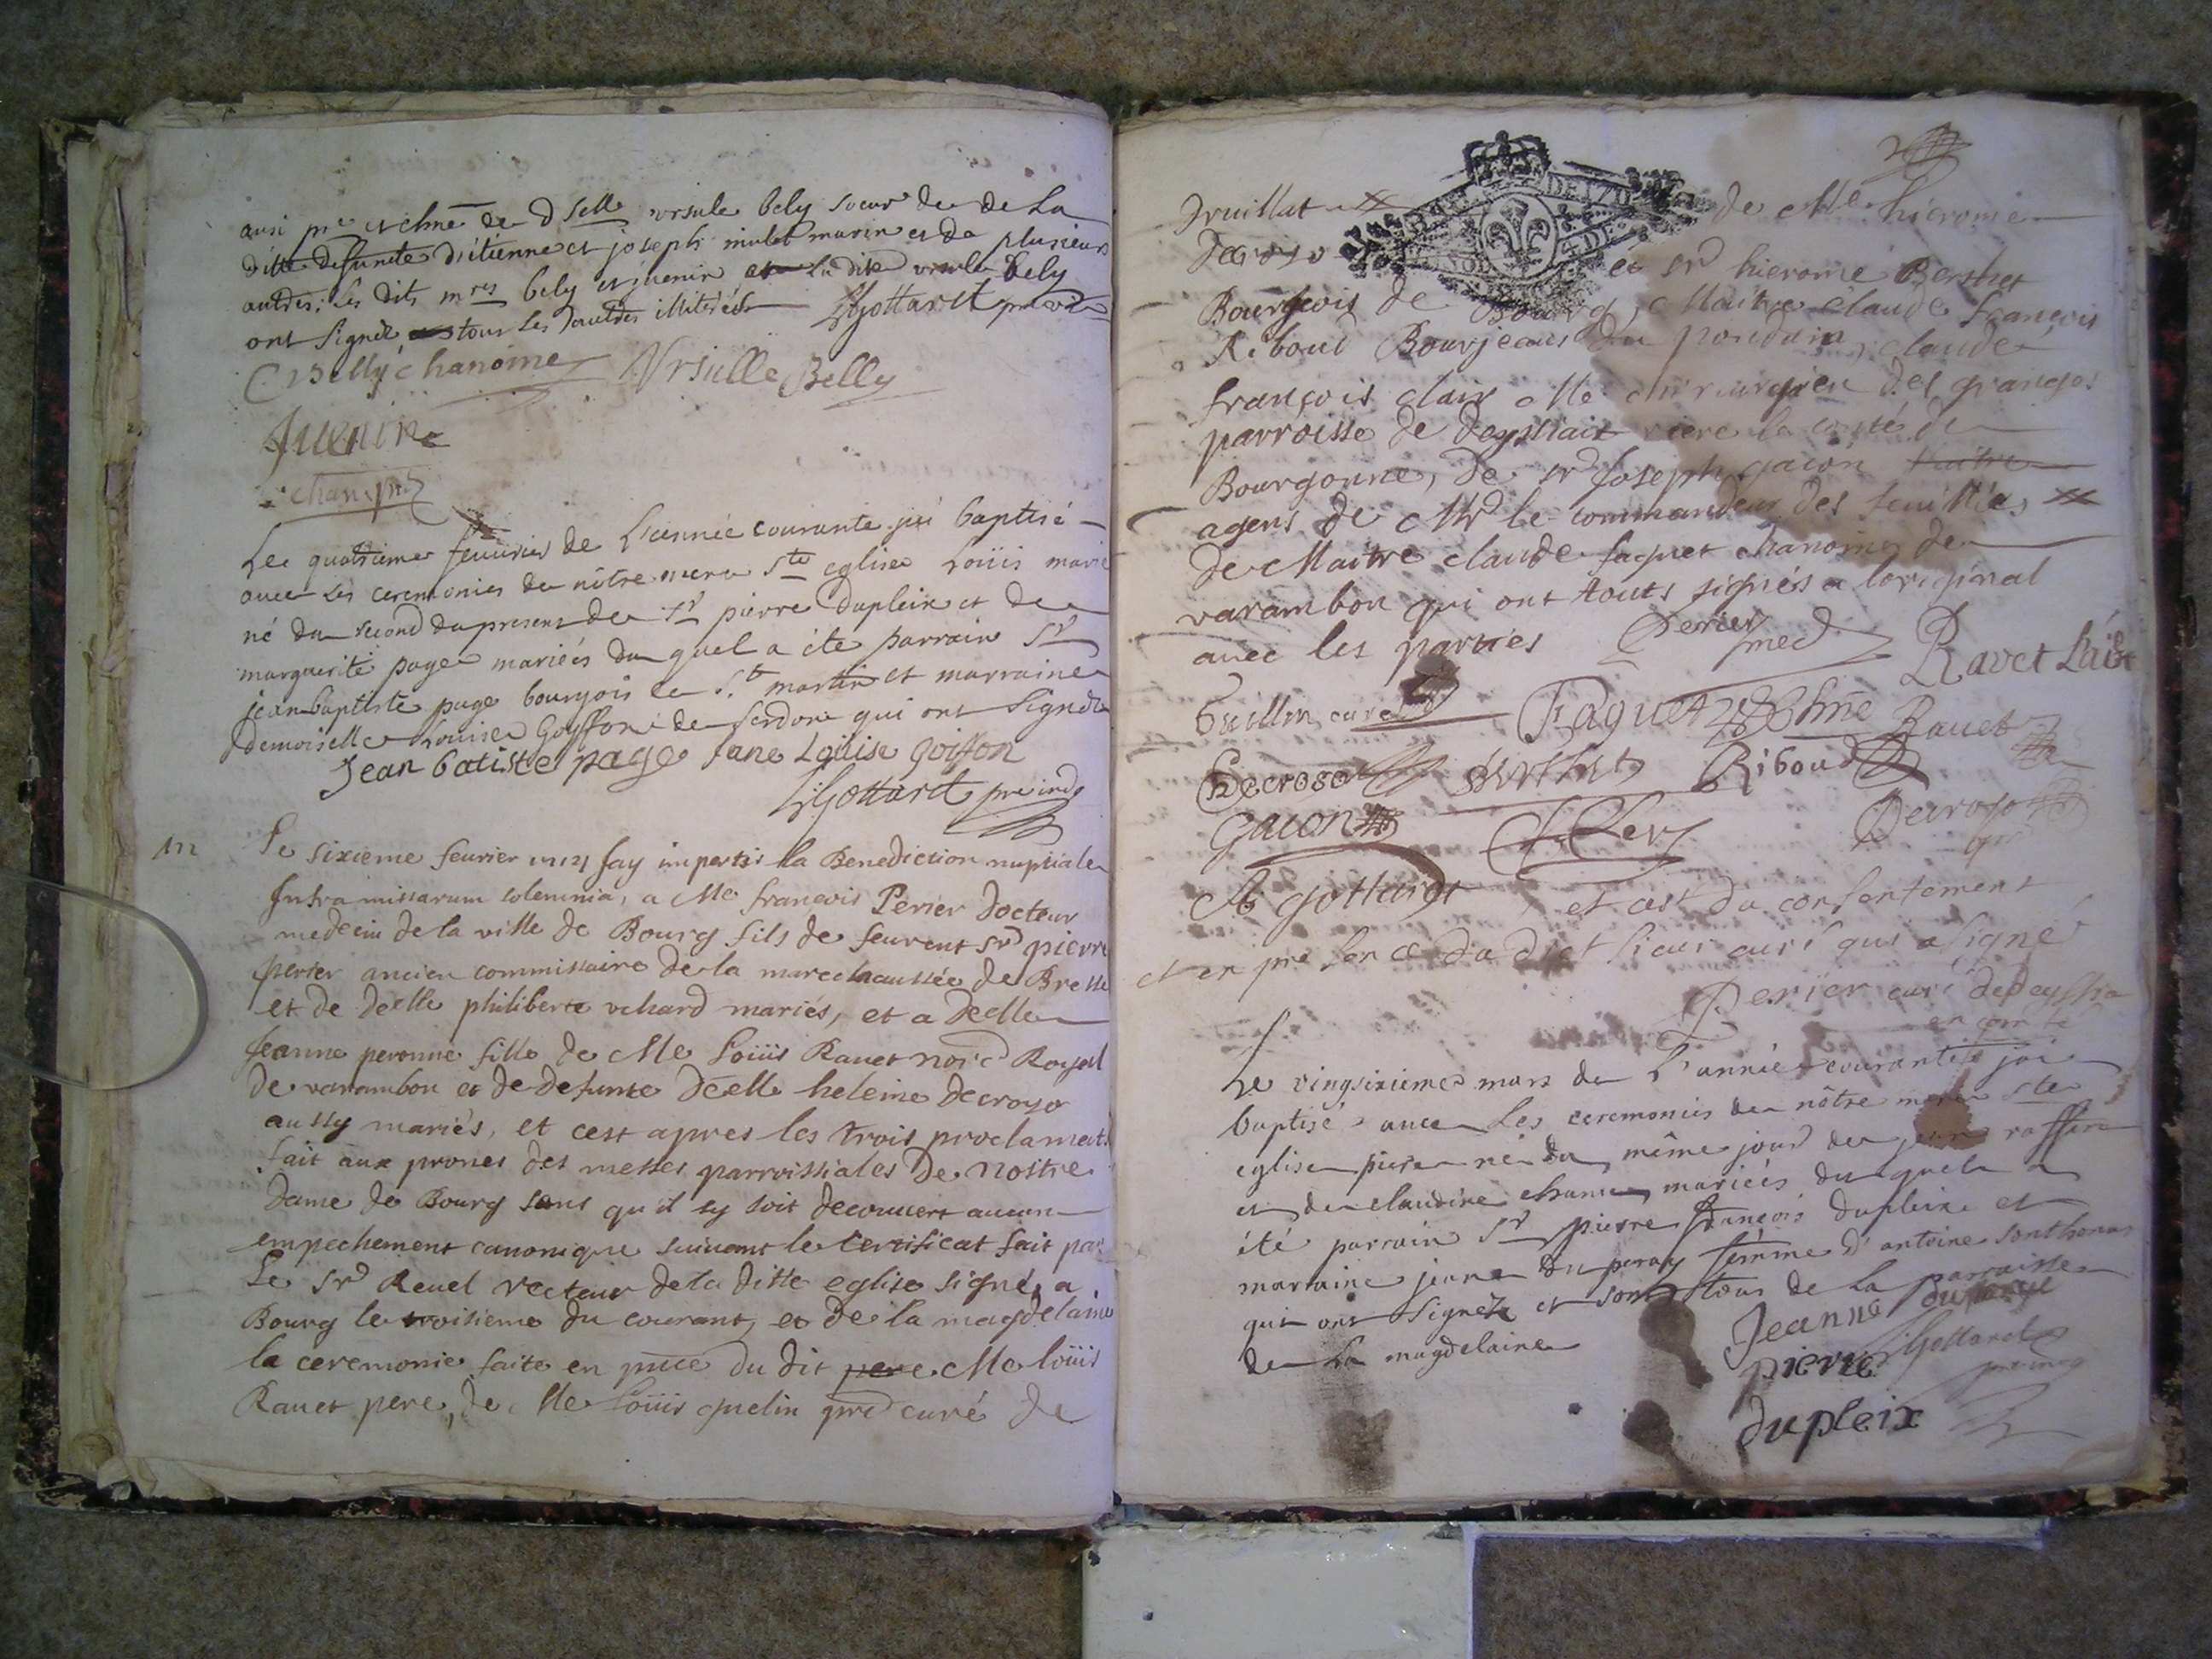 ausi pre et chne de dselle ursule bely soeur de de la
ditte defunte d'étienne et joseph mulet marin et de plusieurs
autres. les dits mres bely et juenin et la dite ursule bely
ont signé tous les autres illiterés Gottaret pre vic
C Belly chanoine Ursulle Belly
Juenin
chan
Le quatrieme feuvrier de l'année courante jai baptisé
avec les ceremonies de nôtre mere Ste eglise Loüis marie
né du second du present de Sr pierre dupleix et de
marguerite page mariés du quel a été parrain Sr
jean baptiste page bourgois de St martin et marraine
demoiselle Louise Goyffon de serdon qui ont signé
Jean batiste page Jane Louise goiffon
Gottaret pre
Le sixieme feurier jay impartir la Benediction nuptiale
Intra missarum solemnia, a Me françois Perier docteur
medecin de la ville de Bourg fils de feu sr pierre
perier ancien commissaire de la marechaussée de Bresse
et de delle philiberte uchard mariés, et a delle
jeanne peronne fille de Me Loüis Rauet Royal
de varambon et de defunte delle heleine decroso
aussy mariés, et cest apres les trois proclamats
fait aux prones des messes parroissiales de nostre
dame de Bourg sans qu'il sy soit decouuert aucun
empechement canonique suiuant le certificat fait par
Le sr Reuel vecteur de la ditte eglise signé a
Bourg le troisieme du courant, et de la magdelaine
la ceremonie faite en pnce du dit pere Me loüis
Rauet pere, de Me Loüis guelin pre curé de
Druillat de Me hierome
decroso et sr hierome Berthet
Bourgeois de Bourg, Maitre claude françois
Riboud Bourjeois du pondain, claude
françois clair Me chirurgien des granges
parroisse de riere la comté de
Bourgonne, de sr Joseph gacon
agent de Mr le commandeur des feuillés
de Maitre claude faguet chanoine de
varambon qui ont touts signés a loriginal
avec les parties Perier med Ravet
Guillin curé Faguet chne Rauet
Decroso Berthet Riboud
gacon Cler Decroso
Gottaret et cest du consentement
et en presence dudict sieur curé qui a signé
Perier curé
en comté
Le vingsixieme mars de l'année courante jai
baptisé avec les ceremonies de nôtre mere Ste
eglise piere né du même jour de jean raffin
et de claudine mariés du quel a
été parrain Sr pierre françois dupleix et
marraine jeane duperay femme d'antoine sonthonax
qui ont signé et sont tous de la parraisse
de la magdelaine Jeanne
pierre Gottaret
dupleix